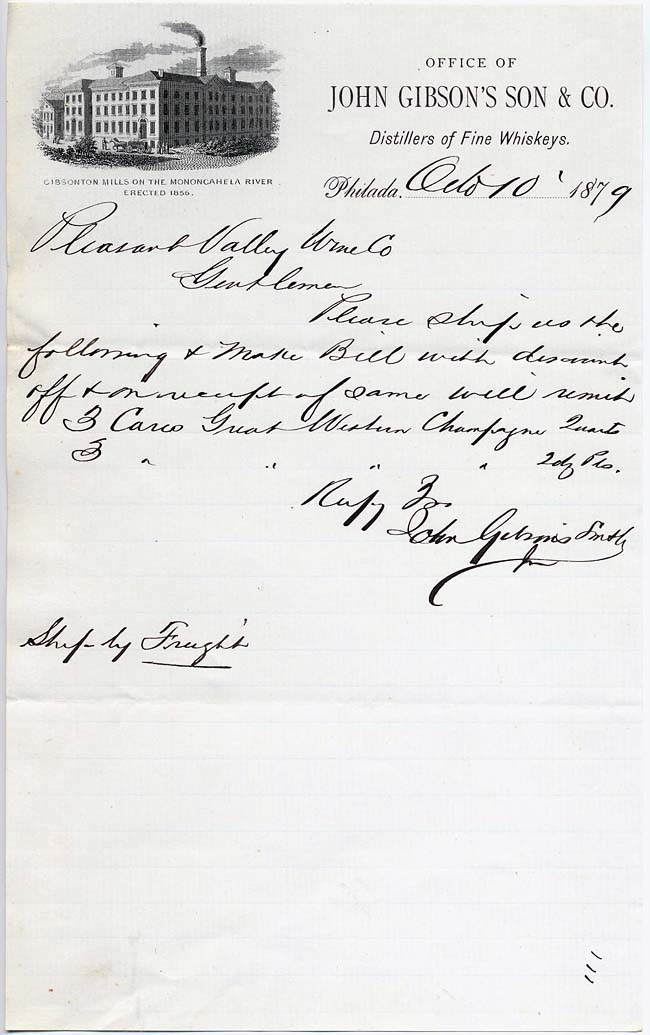 OFFICE OF
JOHN GIBSON'S SON & CO.
Distillers of Fine Whiskeys.
GIBSONTON MILLS ON THE MONONGAHELA RIVER
ERECTED 1856.
Philada. Oct 10 1879
Pleasant Valley Wine Co
Gentlemen
Please ship us the
following & Make Bill with discount
off & on receipt of same will remit
3 Cases Great Western Champagne Quarts
3 " " " " 2 dz Pts.
John Gibson's
Ship by Freight
111